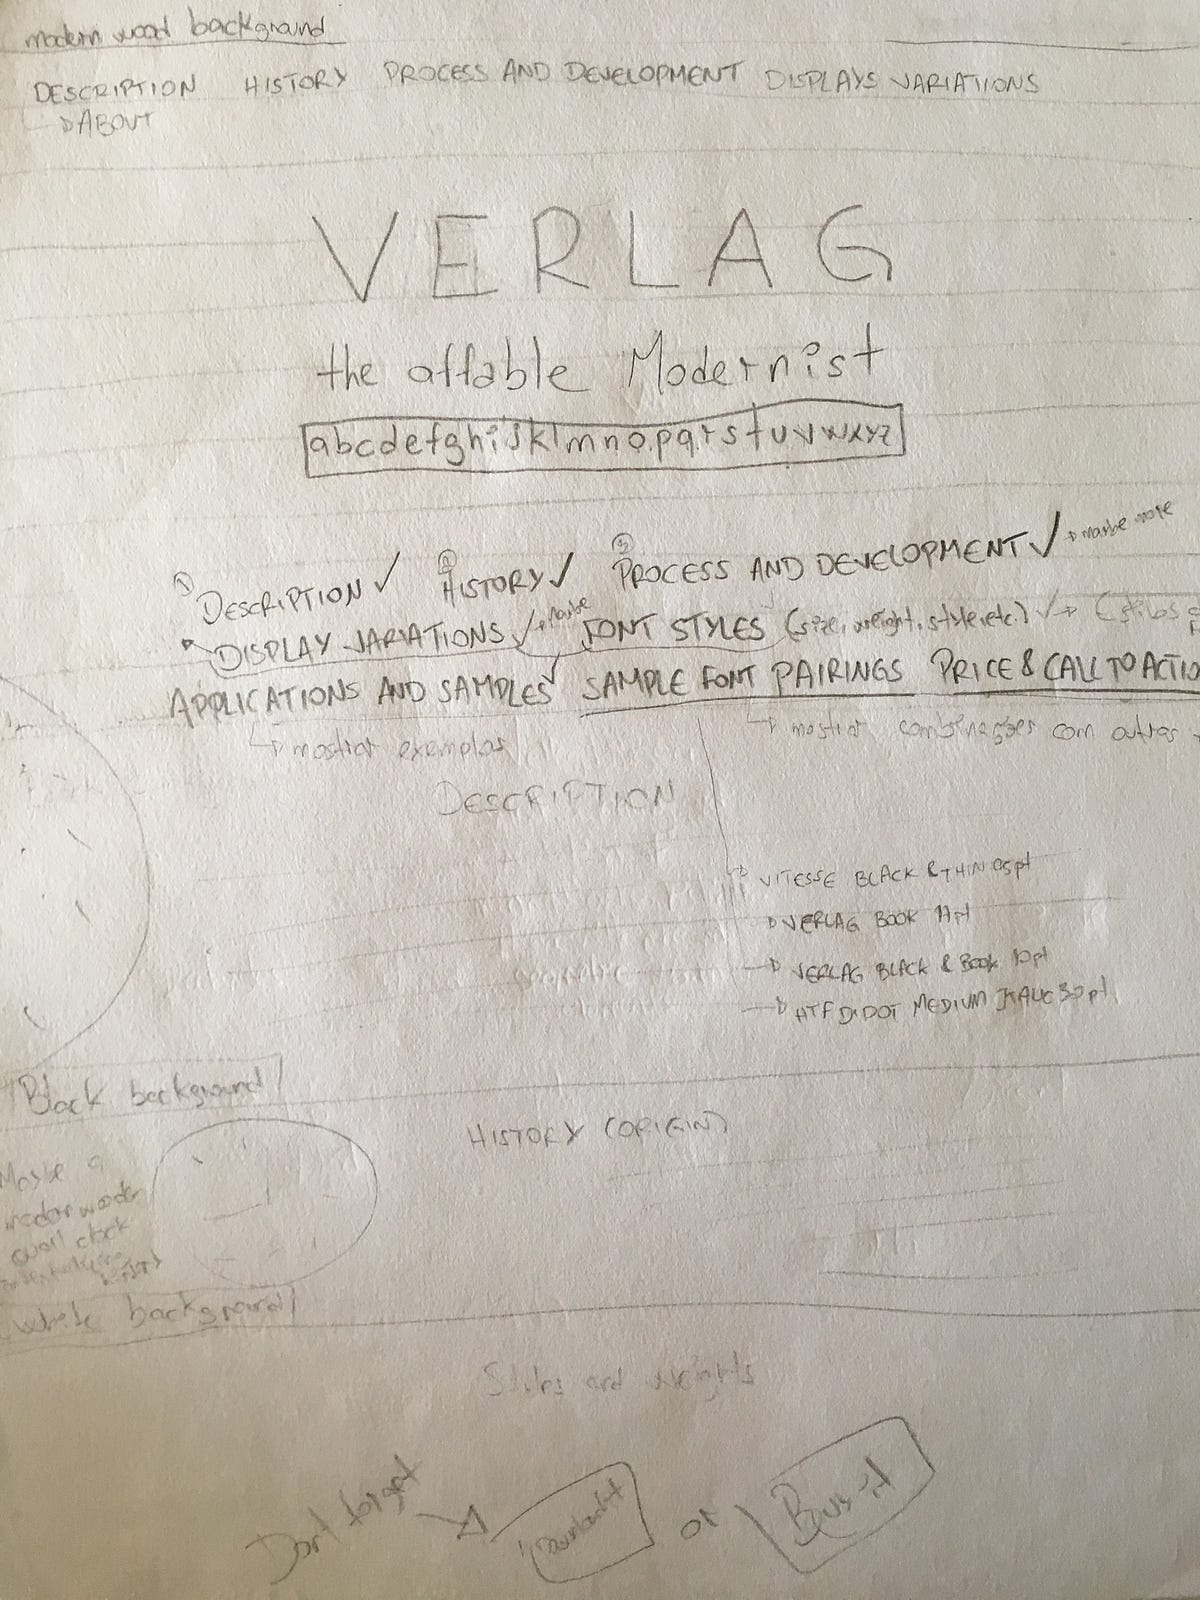 modern wood background
DESCRIPTION HISTORY PROCESS AND DEVELOPMENT DISPLAYS VARIATIONS
ABOUT
VERLAG
the affable Modernist
abcdefghijklmnopqrstuvwxyz
1 DESCRIPTION ✓ 2 HISTORY ✓ 3 PROCESS AND DEVELOPMENT ✓ → maybe more
DISPLAY VARIATIONS ✓ → maybe FONT STYLES (size, weight, style, etc.) ✓ →
APPLICATIONS AND SAMPLES ✓ SAMPLE FONT PAIRINGS PRICE & CALL TO ACTIO
mostrar exemplos mostrar combinações com outras
DESCRIPTION
VITESSE BLACK & THIN
VERLAG BOOK 11pt
VERLAG BLACK & BOOK 10pt
HTF DIDOT MEDIUM ITALIC 30pt
Black background
HISTORY (ORIGIN)
Maybe a
modern wooden
wall clock
white background
Styles and weights
Dont forget → Download it or Buy it